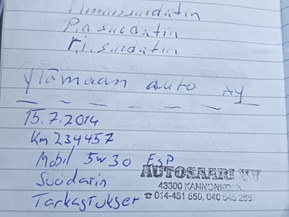 P.a suodatin
r.i. suodatin
Ylämaan auto Ky
15.7.2014
Km 234457
Mobil 5w30 ESP
Suodatin
Tarkastukset
AUTOSAARI KY
43300 KANNONKOSKI
014-451 550, 040 545